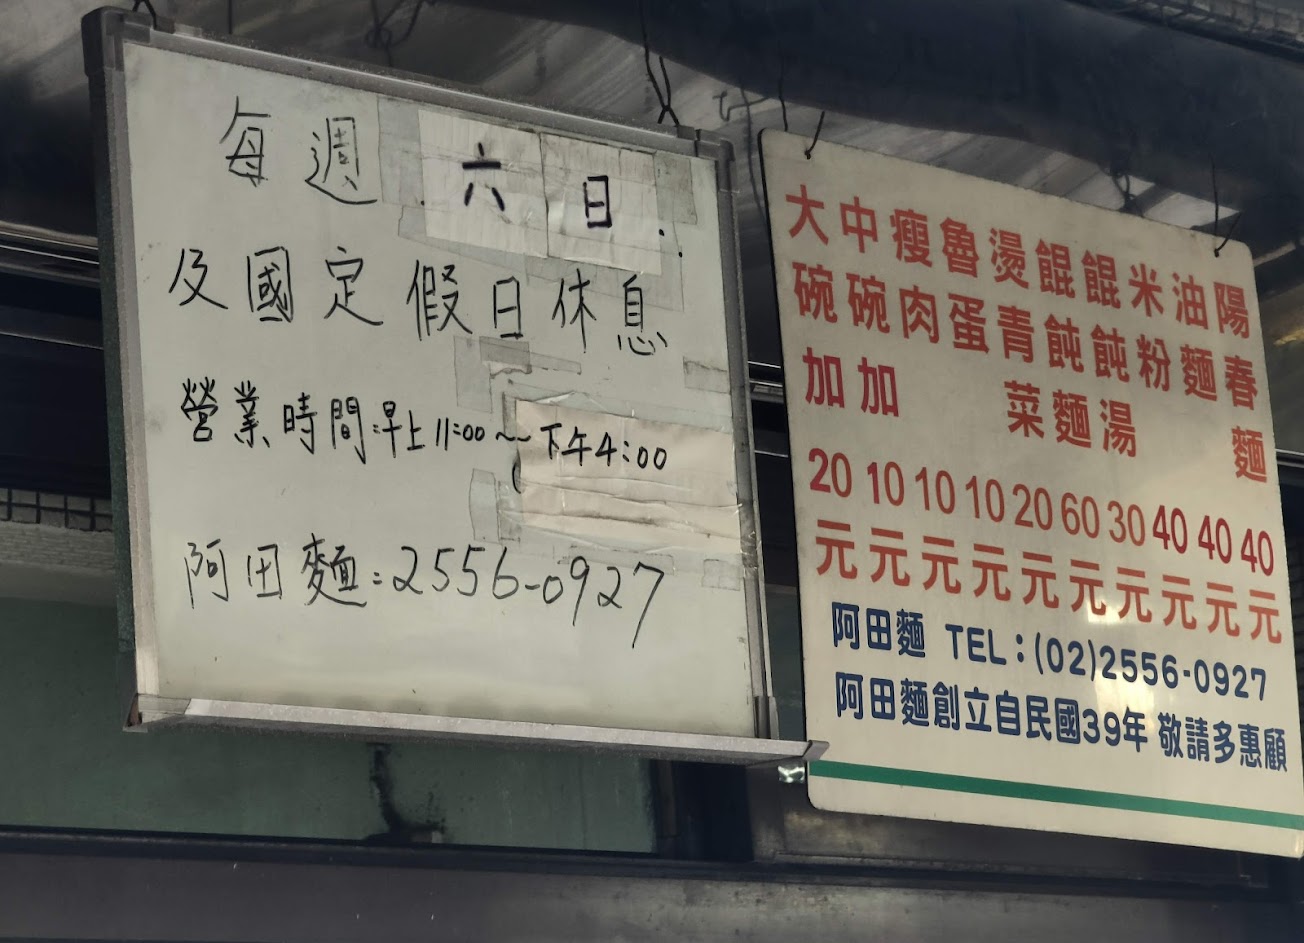 每週六日.
及國定假日休息
營業時間:早上11:00~下午4:00
阿田麵:2556-0927
陽春麵 40元
油麵 40元
米粉 40元
餛飩湯 30元
餛飩麵 60元
燙青菜 20元
魯蛋 10元
瘦肉 10元
中碗加 10元
大碗加 20元
阿田麵 TEL:(02)2556-0927
阿田麵創立自民國39年 敬請多惠顧